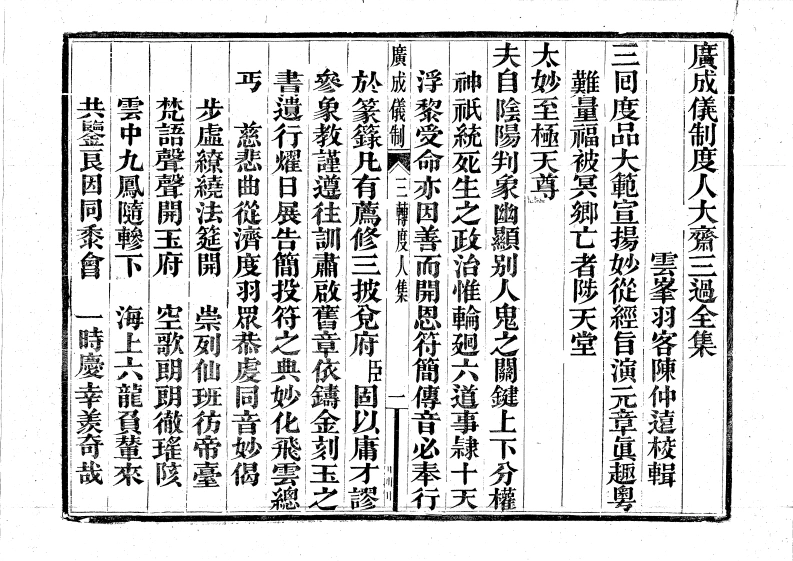 廣成儀制度人大齋三過全集
雲峯羽客陳仲遠校輯
三回度品大範宣揚妙從經旨演元章眞趣粵
難量福被冥鄉亡者陟天堂
太妙至極天尊
夫自陰陽判象幽顯別人鬼之關鍵上下分權
神祇統死生之政治惟輪廻六道事隷十天
浮黎受命亦因善而開恩符簡傳音必奉行
廣成儀制 三轉度人集 一
於篆籙凡有薦修三披兌府臣固以庸才謬
參象教謹遵往訓肅啟舊章依鑄金刻玉之
書遺行燿日展告簡投符之典妙化飛雲總
丐 慈悲曲從濟度羽眾恭虔同音妙偈
步虛繚繞法筵開 崇列仙班彷帝臺
梵語聲聲開玉府 空歌朗朗徹瑤陔
雲中九鳳隨轓下 海上六龍負輦來
共鑒良因同黍會 一時慶幸羨奇哉